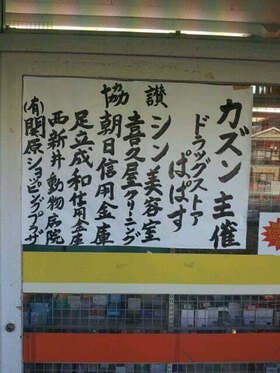 カズン主催
ドラッグストア
ぱぱす
協賛
シン美容室
喜久屋クリーニング
朝日信用金庫
足立成和信用金庫
西新井動物病院
(有)関原ショッピングプラザ